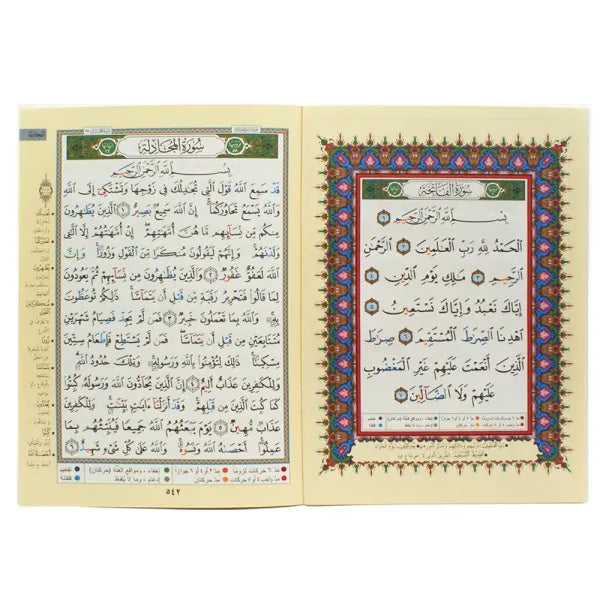 سُورَةُ الفَاتِحَةِ
بِسْمِ ٱللَّهِ ٱلرَّحْمَٰنِ ٱلرَّحِيمِ ١
ٱلْحَمْدُ لِلَّهِ رَبِّ ٱلْعَٰلَمِينَ ٢ ٱلرَّحْمَٰنِ
ٱلرَّحِيمِ ٣ مَٰلِكِ يَوْمِ ٱلدِّينِ ٤
إِيَّاكَ نَعْبُدُ وَإِيَّاكَ نَسْتَعِينُ ٥
ٱهْدِنَا ٱلصِّرَٰطَ ٱلْمُسْتَقِيمَ ٦ صِرَٰطَ
ٱلَّذِينَ أَنْعَمْتَ عَلَيْهِمْ غَيْرِ ٱلْمَغْضُوبِ
عَلَيْهِمْ وَلَا ٱلضَّآلِّينَ ٧
المجادلة
سُورَةُ المُجَادلَةِ
بِسْمِ ٱللَّهِ ٱلرَّحْمَٰنِ ٱلرَّحِيمِ
قَدْ سَمِعَ ٱللَّهُ قَوْلَ ٱلَّتِى تُجَٰدِلُكَ فِى زَوْجِهَا وَتَشْتَكِىٓ إِلَى ٱللَّهِ
وَٱللَّهُ يَسْمَعُ تَحَاوُرَكُمَآ إِنَّ ٱللَّهَ سَمِيعٌۢ بَصِيرٌ ١ ٱلَّذِينَ يُظَٰهِرُونَ
مِنكُم مِّن نِّسَآئِهِم مَّا هُنَّ أُمَّهَٰتِهِمْ إِنْ أُمَّهَٰتُهُمْ إِلَّا ٱلَّٰٓـِٔى
وَلَدْنَهُمْ وَإِنَّهُمْ لَيَقُولُونَ مُنكَرًا مِّنَ ٱلْقَوْلِ وَزُورًا وَإِنَّ
ٱللَّهَ لَعَفُوٌّ غَفُورٌ ٢ وَٱلَّذِينَ يُظَٰهِرُونَ مِن نِّسَآئِهِمْ ثُمَّ يَعُودُونَ
لِمَا قَالُوا۟ فَتَحْرِيرُ رَقَبَةٍ مِّن قَبْلِ أَن يَتَمَآسَّا ذَٰلِكُمْ تُوعَظُونَ
بِهِۦ وَٱللَّهُ بِمَا تَعْمَلُونَ خَبِيرٌ ٣ فَمَن لَّمْ يَجِدْ فَصِيَامُ شَهْرَيْنِ
مُتَتَابِعَيْنِ مِن قَبْلِ أَن يَتَمَآسَّا فَمَن لَّمْ يَسْتَطِعْ فَإِطْعَامُ سِتِّينَ
مِسْكِينًا ذَٰلِكَ لِتُؤْمِنُوا۟ بِٱللَّهِ وَرَسُولِهِۦ وَتِلْكَ حُدُودُ ٱللَّهِ
وَلِلْكَٰفِرِينَ عَذَابٌ أَلِيمٌ ٤ إِنَّ ٱلَّذِينَ يُحَآدُّونَ ٱللَّهَ وَرَسُولَهُۥ كُبِتُوا۟
كَمَا كُبِتَ ٱلَّذِينَ مِن قَبْلِهِمْ وَقَدْ أَنزَلْنَآ ءَايَٰتٍۭ بَيِّنَٰتٍ وَلِلْكَٰفِرِينَ
عَذَابٌ مُّهِينٌ ٥ يَوْمَ يَبْعَثُهُمُ ٱللَّهُ جَمِيعًا فَيُنَبِّئُهُم بِمَا
عَمِلُوٓا۟ أَحْصَىٰهُ ٱللَّهُ وَنَسُوهُ وَٱللَّهُ عَلَىٰ كُلِّ شَىْءٍ شَهِيدٌ ٦
مدّ ٦ حركات لزوماً مدّ ٢ أو ٤ أو ٦ جوازاً إخفاء، ومواقع الغُنَّة (حركتان) تفخيم
مدّ واجب ٤ أو ٥ حركات مدّ حركتان إدغام، وما لا يُلفَظ قلقلة
٥٤٢